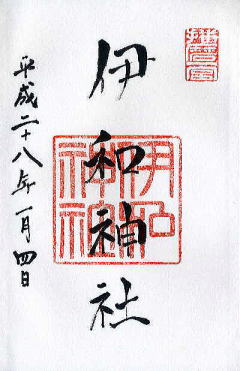 播磨一宮
伊和神社
伊和神社
平成二十八年一月四日